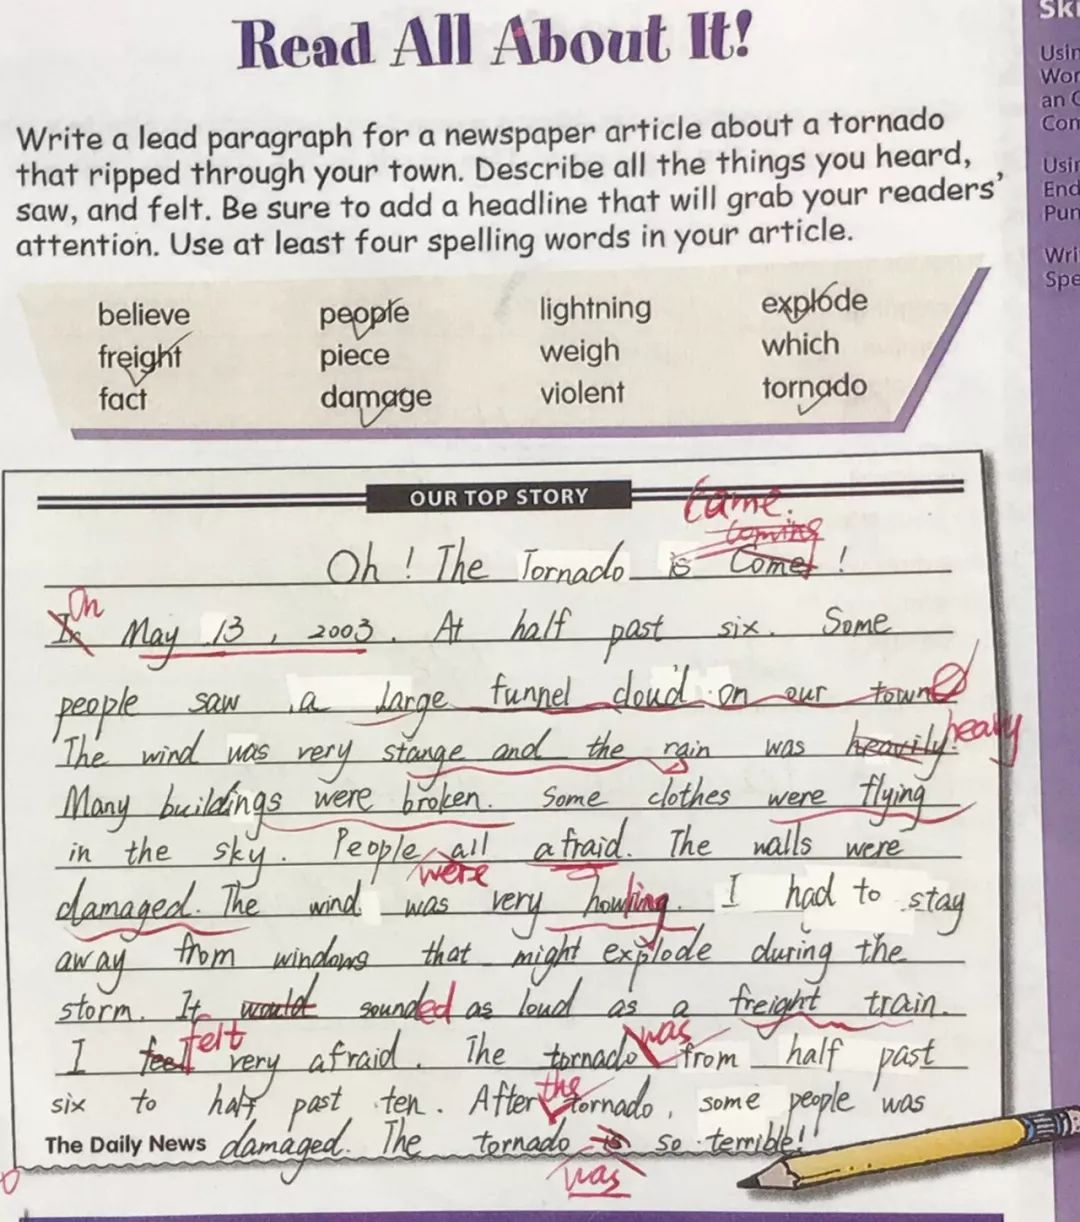 Read All About It!
Ski
Usin
Wor
an C
Com
Usin
End
Pun
Wri
Spe
Write a lead paragraph for a newspaper article about a tornado
that ripped through your town. Describe all the things you heard,
saw, and felt. Be sure to add a headline that will grab your readers'
attention. Use at least four spelling words in your article.
believe people lightning explode
freight piece weigh which
fact damage violent tornado
OUR TOP STORY
came.
coming
Oh! The Tornado is Comes!
On
In May 13, 2003. At half past six. Some
people saw a large funnel cloud on our town
heavy
The wind was very stange and the rain was heavily.
Many buildings were broken. Some clothes were flying
in the sky. People all afraid. The walls were
were
damaged. The wind was very howling. I had to stay
away from windows that might explode during the
storm. It would sounded as loud as a freight train.
felt was
I feel very afraid. The tornado from half past
the
six to half past ten. After tornado, some people was
The Daily News damaged. The tornado is so terrible!
was